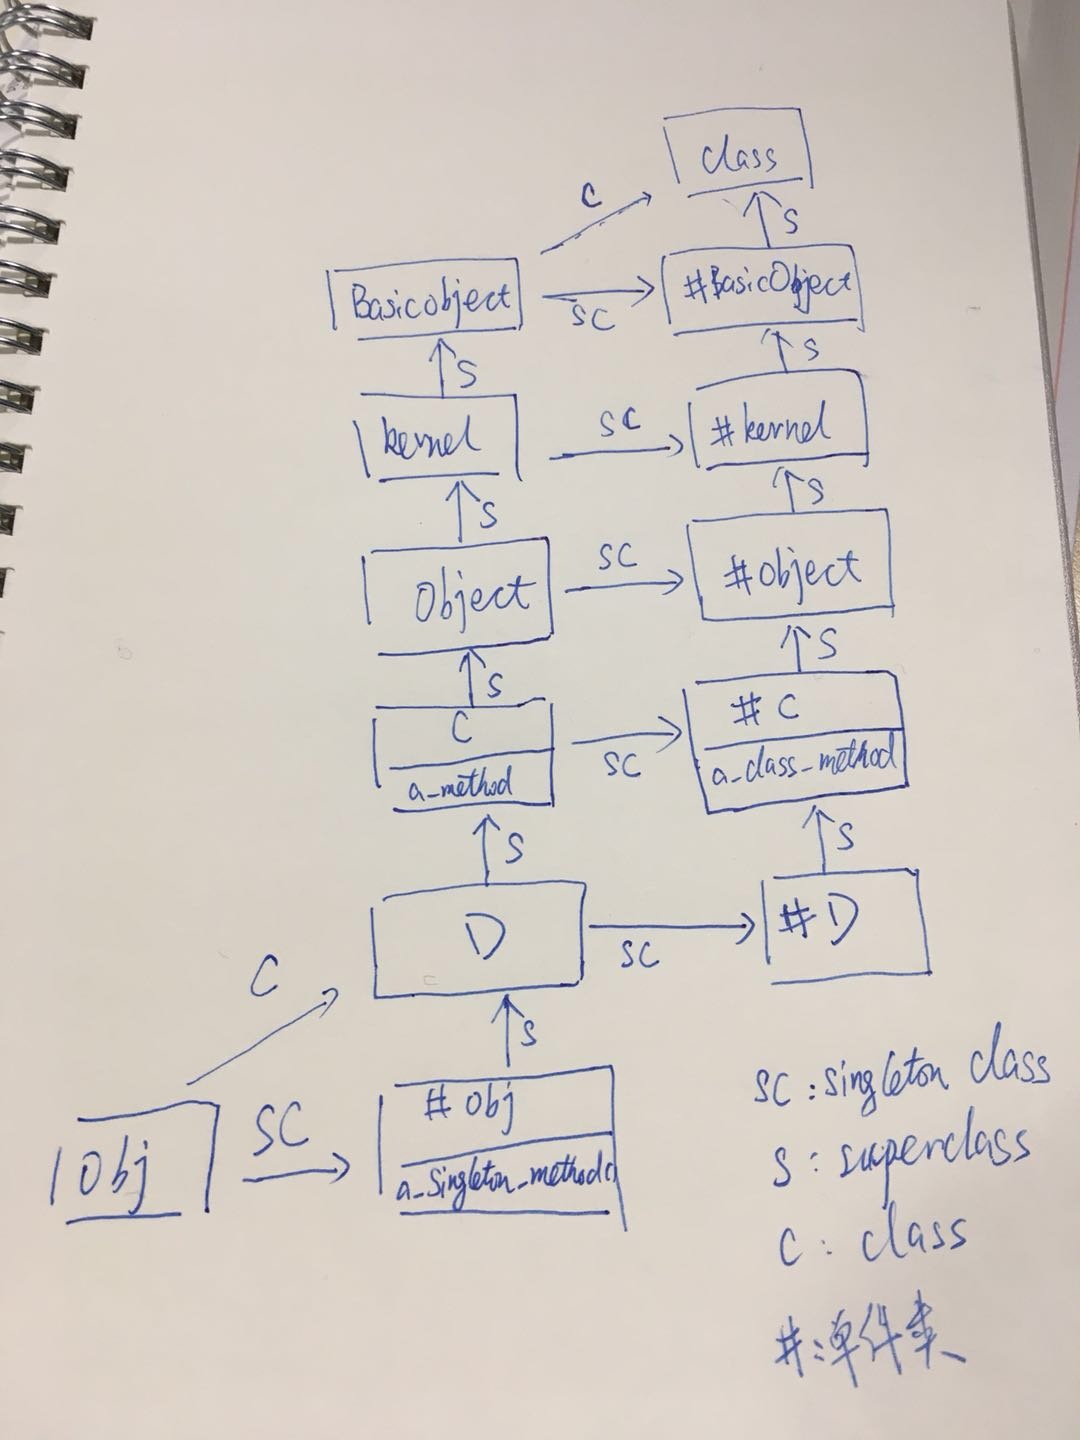 class
C
S
Basicobject
SC
#BasicObject
S
S
kernel
SC
#kernel
S
S
Object
SC
#object
S
S
C
SC
# C
a_method
a_class_method
S
S
D
SC
#D
C
S
Obj
SC
# obj
a_singleton_method()
SC : singleton class
S : superclass
C : class
# : 单件类